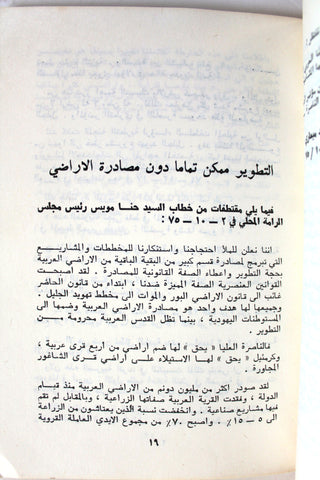 التطوير ممكن تماما دون مصادرة الاراضي
فيما يلي مقتطفات من خطاب السيد حنا مويس رئيس مجلس
الرامة المحلي في ٢ — ١٠ — ٧٥ :
اننا نعلن للملأ احتجاجنا واستنكارنا للمخططات والمشاريع
التي تبرمج لمصادرة قسم كبير من البقية الباقية من الاراضي العربية
بحجة التطوير واعطاء الصفة القانونية للمصادرة . لقد اصبحت
القوانين العنصرية الصفة المميزة ضدنا ، ابتداء من قانون الحاضر
غائب الى قانون الاراضي البور والموات الى مخطط تهويد الجليل .
وجميعها لها هدف واحد هو مصادرة الاراضي العربية وضمها الى
المستوطنات اليهودية ، بينما تظل القدس العربية محرومة مــن
التطوير .
فالناصرة العليا « يحق » لها ضم اراضي من اربع قرى عربية ،
وكرمئيل « يحق » لهــا الاستيلاء على أراضي قــرى الشاغور
المجاورة .
لقد صودر اكثر من مليون دونم من الاراضي العربية منذ قيــام
الدولة ، وفقدت القرية العربية صفاتها الزراعية ، وبالمقابل لم تقم
فيها مشاريع صناعية . وانخفضت نسبة الذين يعتاشون من الزراعة
الى ٥ — ١٥٪ . واصبح ٧٠٪ من مجموع الايدي العاملة القروية
١٩